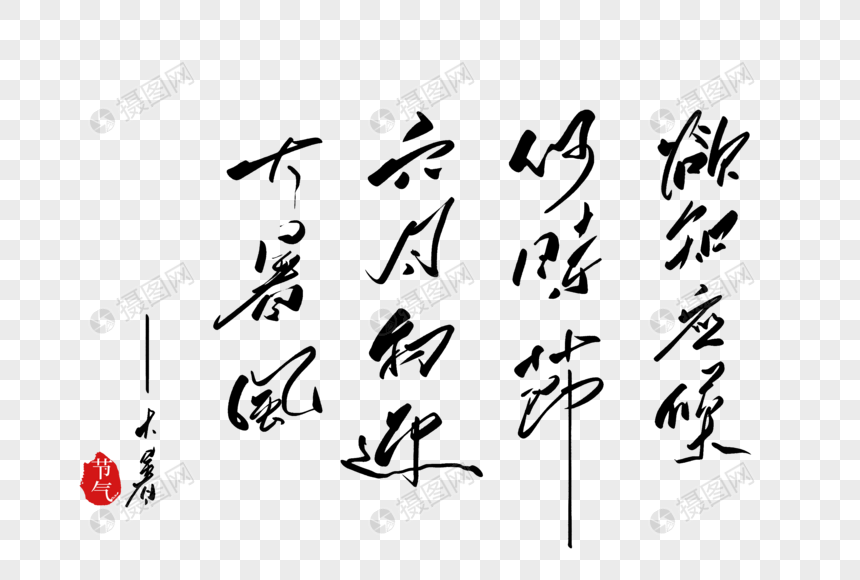 欲知应候
何時節
六月初迎
大暑風
—大暑
节气
摄图网